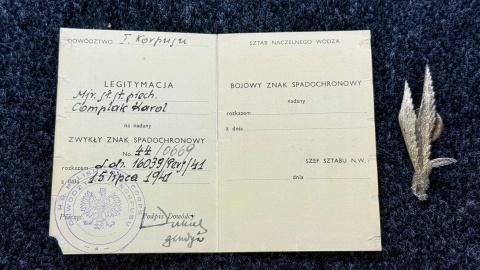 DOWÓDZTWO I. Korpusu
LEGITYMACJA
Mjr. st. st. piech.
Complak Karol
na nadany
ZWYKŁY ZNAK SPADOCHRONOWY
No. 44/0669
rozkazem L.dz. 16039/Perf/41
z dnia 15 lipca 1941
Pieczęć Podpis Dowódcy
SZTAB NACZELNEGO WODZA
BOJOWY ZNAK SPADOCHRONOWY
nadany
rozkazem
z dnia
SZEF SZTABU N.W.
dnia